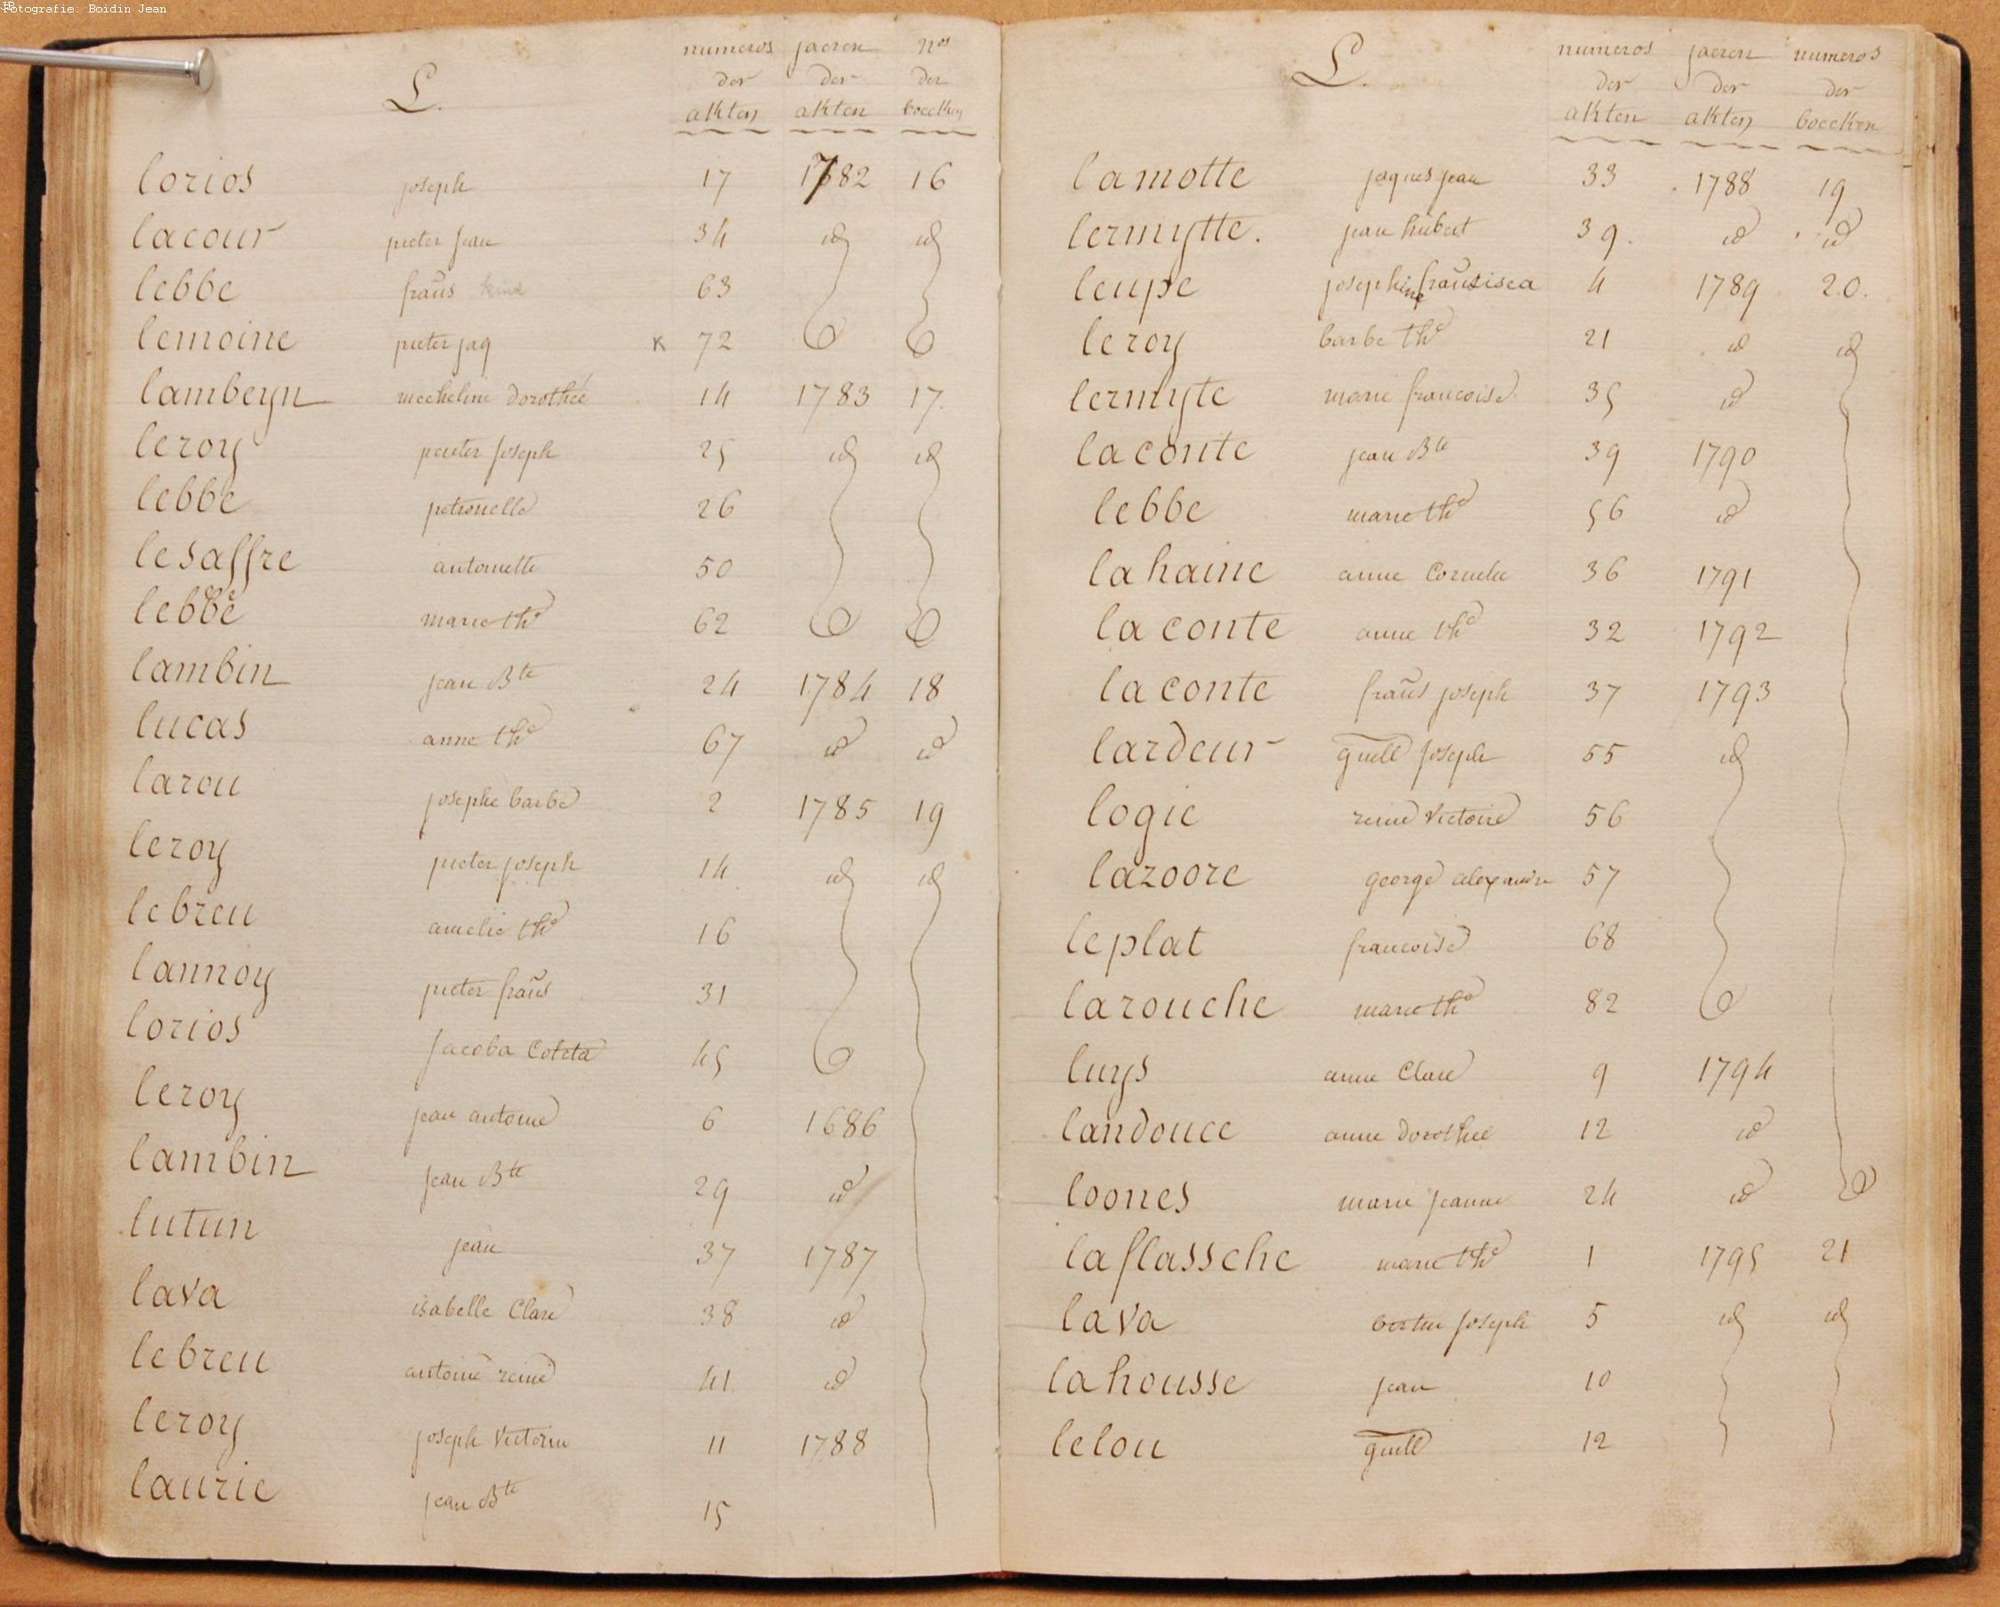 Fotografie: Boidin Jean
L.
numeros jaeren nos
der der der
akten akten boecken
lorios joseph 17 1782 16
lacour pieter jean 34 id id
lebbe frans 63
lemoine pieter jaq 72
lambeyn mecheline dorothée 14 1783 17
leroy pieter joseph 25 id id
lebbe petronelle 26
lesaffre antoinette 50
lebbe marie the 62
lambin jean Bte 24 1784 18
lucas anne the 67 id id
larou josephe barbe 2 1785 19
leroy pieter joseph 14 id id
lebreu amelie the 16
lannoy pieter frans 31
lorios jacoba Coleta 45
leroy jean antoine 6 1686
lambin jean Bte 29 id
lutun jean 37 1787
lava isabelle Clare 38 id
lebreu antoine reine 41 id
leroy joseph Victorin 11 1788
laurie jean Bte 15
L.
numeros jaeren numeros
der der der
akten akten boecken
lamotte jaques jean 33 1788 19
lermytte. jean hubert 39. id id
leupe josephine fransisca 4 1789 20.
leroy barbe the 21 id id
lermyte marie francoise 35 id
laconte jean Bte 39 1790
lebbe marie the 56 id
lahaine anne Cornelie 36 1791
laconte anne the 32 1792
laconte frans joseph 37 1793
lardeur guell joseph 55 id
logie reine Victoire 56
lazoore george alexandre 57
leplat francoise 68
larouche marie the 82
luys anne Clare 9 1794
landouce anne dorothée 12 id
loones marie jeanne 24 id
laflassche marie the 1 1795 21
lava joseph 5 id id
lahousse jean 10
lelou guell 12